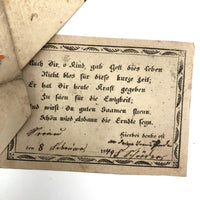 Auch Dir, o Kind, gab Gott dies Leben
Nicht blos für diese kurze Zeit;
Er hat Dir heute Kraft gegeben
Zu säen für die Ewigkeit;
Und wirst Du guten Saamen streun,
Schön wird alsdann die Erndte seyn.
Hierbei denke oft
den 8